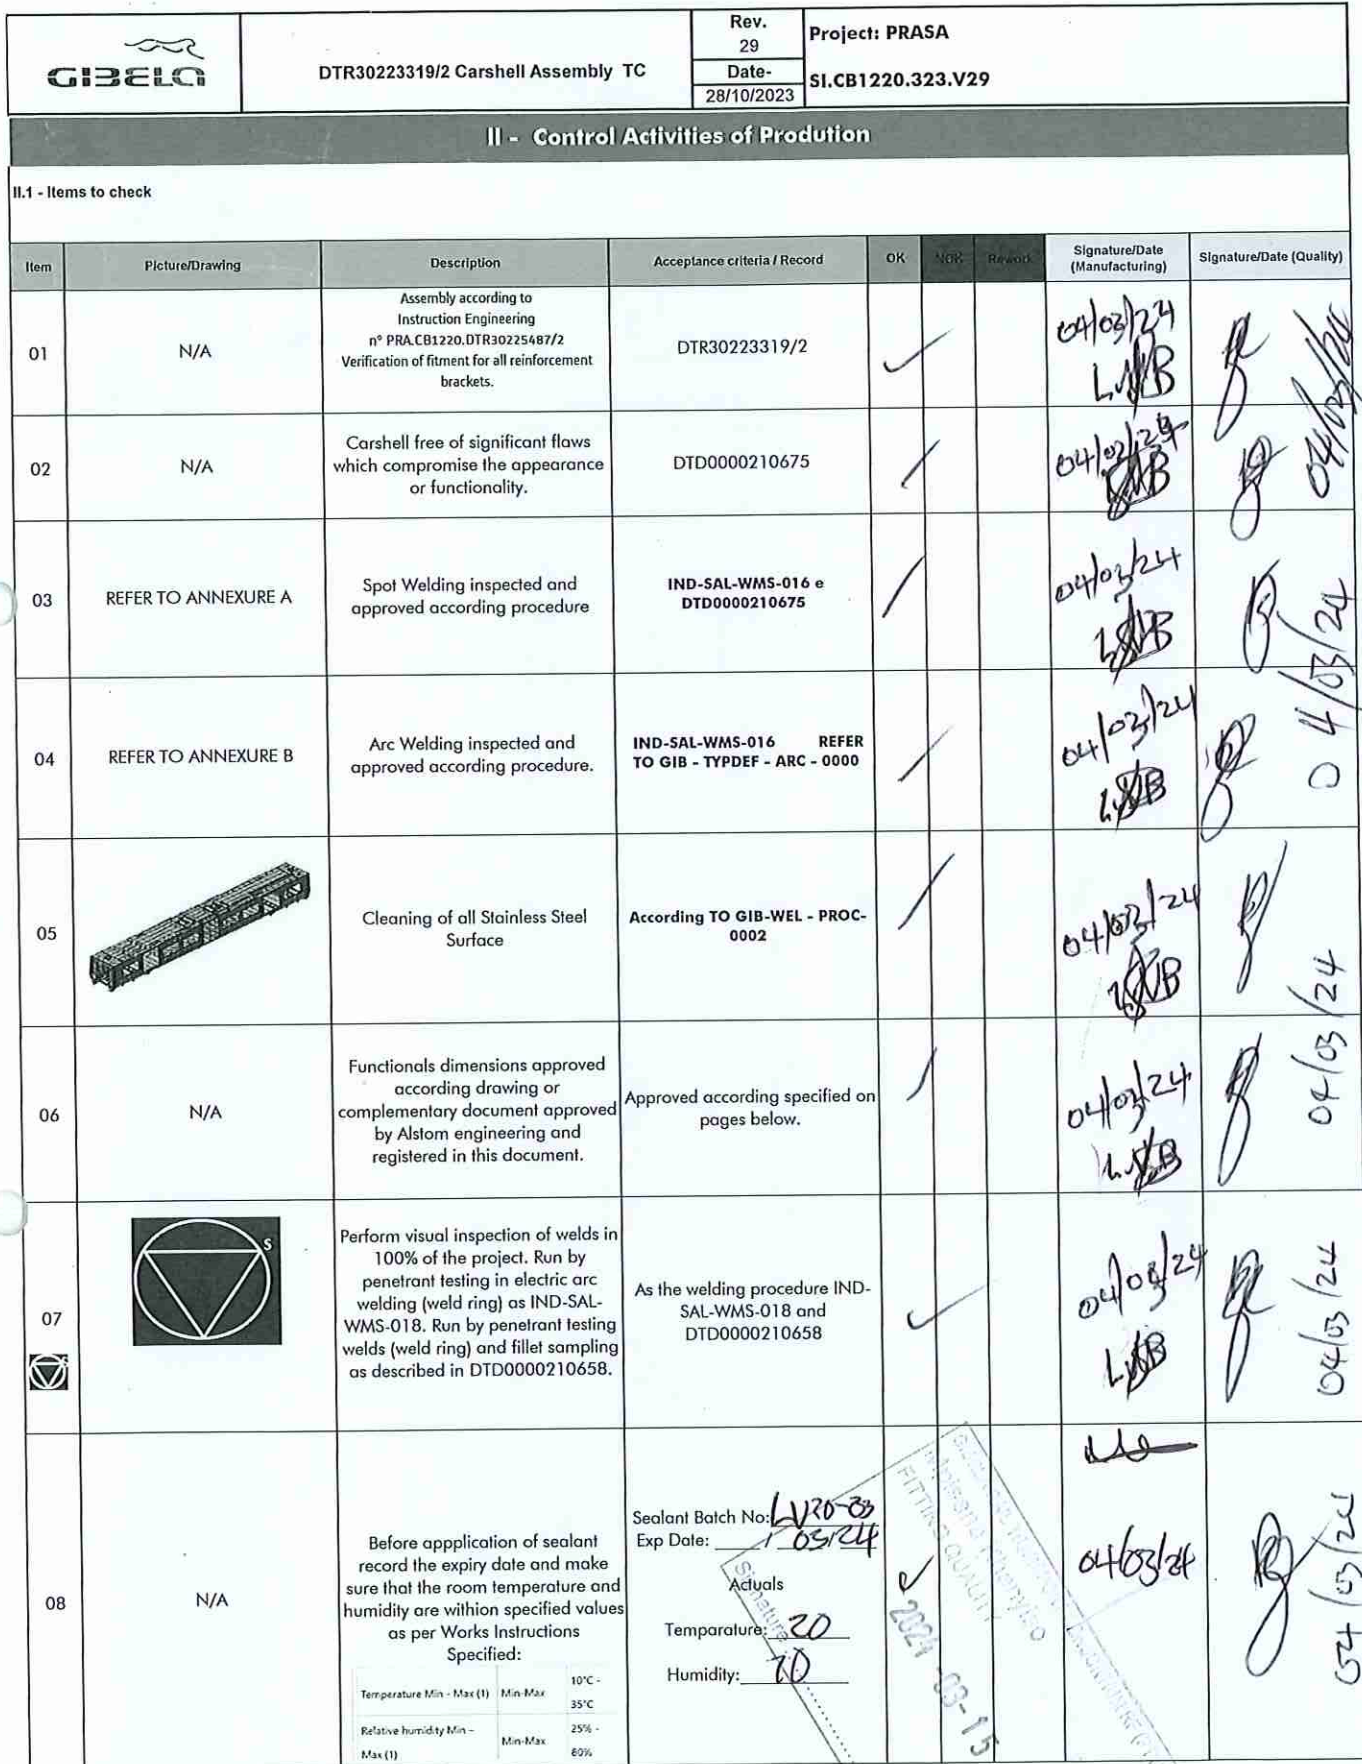 GIBELA
DTR30223319/2 Carshell Assembly TC
Rev.
29
Date-
28/10/2023
Project: PRASA
SI.CB1220.323.V29
II - Control Activities of Prodution
II.1 - Items to check
Item Picture/Drawing Description Acceptance criteria / Record OK NOK Rework Signature/Date (Manufacturing) Signature/Date (Quality)
01
N/A
Assembly according to
Instruction Engineering
n° PRA.CB1220.DTR30225487/2
Verification of fitment for all reinforcement
brackets.
DTR30223319/2
04/03/24
04/03/24
02
N/A
Carshell free of significant flaws
which compromise the appearance
or functionality.
DTD0000210675
04/03/24
03
REFER TO ANNEXURE A
Spot Welding inspected and
approved according procedure
IND-SAL-WMS-016 e
DTD0000210675
04/03/24
04/03/24
04
REFER TO ANNEXURE B
Arc Welding inspected and
approved according procedure.
IND-SAL-WMS-016 REFER
TO GIB - TYPDEF - ARC - 0000
04/03/24
05
Cleaning of all Stainless Steel
Surface
According TO GIB-WEL - PROC-
0002
04/03/24
04/03/24
06
N/A
Functionals dimensions approved
according drawing or
complementary document approved
by Alstom engineering and
registered in this document.
Approved according specified on
pages below.
04/03/24
07
S
Perform visual inspection of welds in
100% of the project. Run by
penetrant testing in electric arc
welding (weld ring) as IND-SAL-
WMS-018. Run by penetrant testing
welds (weld ring) and fillet sampling
as described in DTD0000210658.
As the welding procedure IND-
SAL-WMS-018 and
DTD0000210658
04/03/24
04/03/24
08
N/A
Before appplication of sealant
record the expiry date and make
sure that the room temperature and
humidity are withion specified values
as per Works Instructions
Specified:
Temperature Min - Max (1) Min-Max 10°C -
35°C
Relative humidity Min -
Max (1) Min-Max 25% -
80%
Sealant Batch No:
Exp Date: 05/24
Actuals
Temparature: 20
Humidity: 70
04/03/24
Signature
FITTING QUALITY
2024 -03- 15